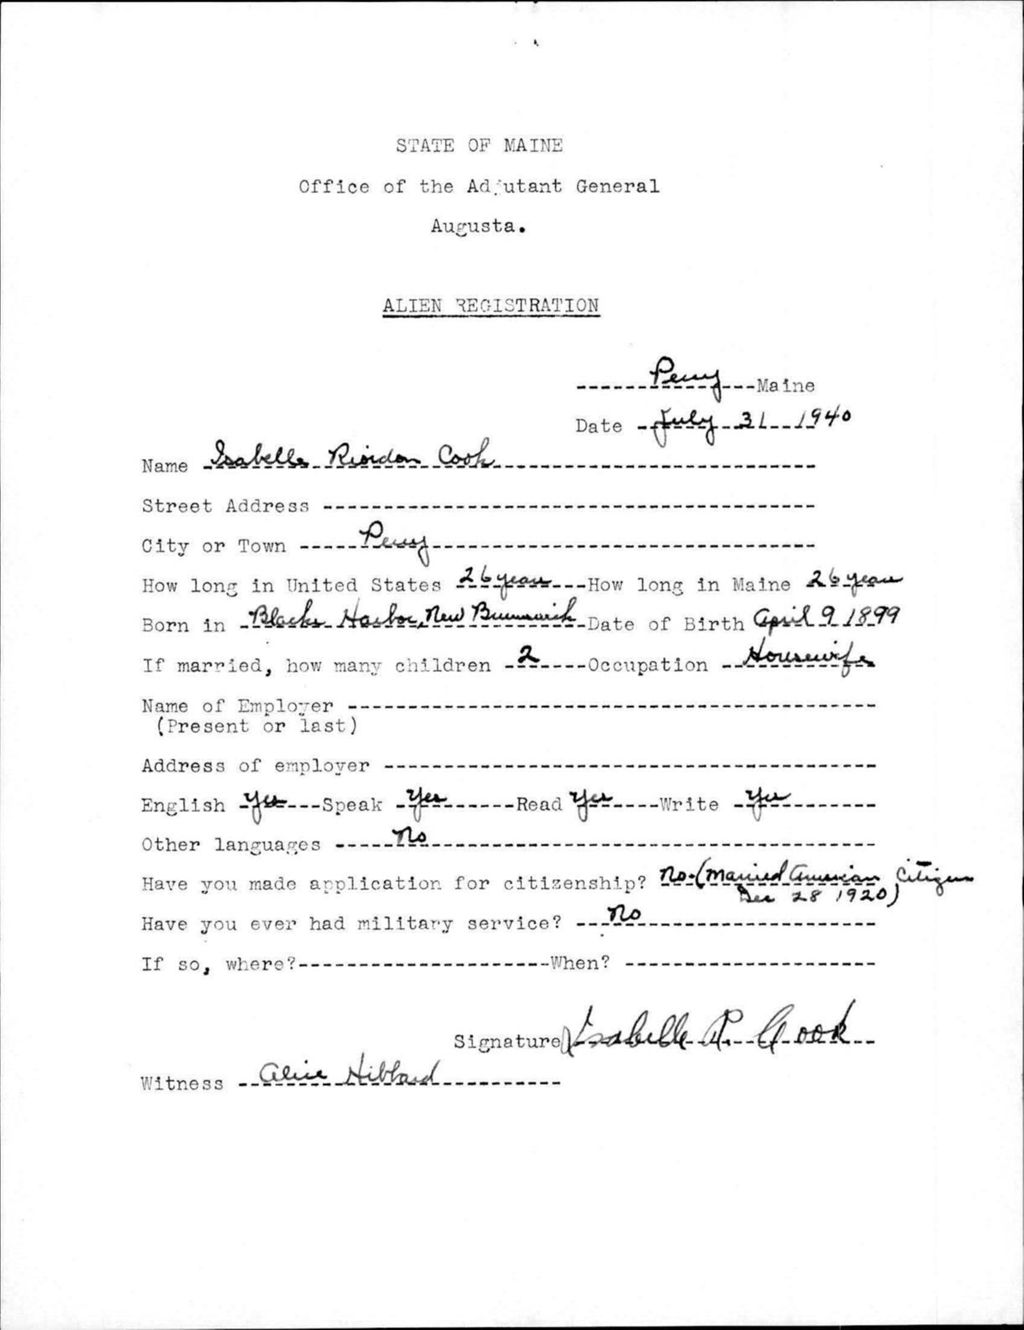 STATE OF MAINE
Office of the Adjutant General
Augusta.
ALIEN REGISTRATION
Perry Maine
Date July 31 1940
Name Isabelle Riordon Cook
Street Address
City or Town Perry
How long in United States 26 years How long in Maine 26 years
Born in Blacks Harbor, New Brunswick Date of Birth April 9 1899
If married, how many children 2 Occupation Housewife
Name of Employer
(Present or last)
Address of employer
English Yes Speak Yes Read Yes Write Yes
Other languages No
Have you made application for citizenship? No-(Married American Citizen
Dec 28 1920)
Have you ever had military service? No
If so, where? When?
Signature Isabelle R. Cook
Witness Alice Hibbard